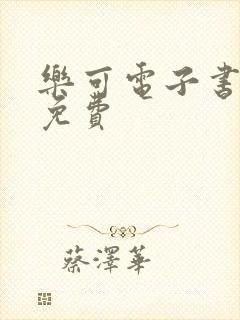 樂可電子書
免費
蔡澤華